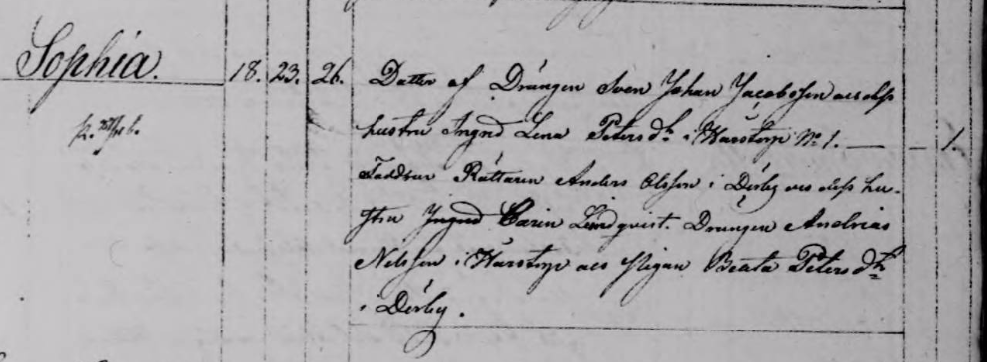 Sophia. 18. 23. 26. Datter af Drängen Sven Johan Jacobsson och dess
hustru Ingrid Lena Petersdr i Harstorp No 1. — — 1.
Faddrar Rättaren Anders Olsson i Dörby och dess hu-
stru Ingrid Carin Lindqvist. Drängen Andreas
Nelsson i Harstorp och Pigan Beata Petersdr
i Dörby.